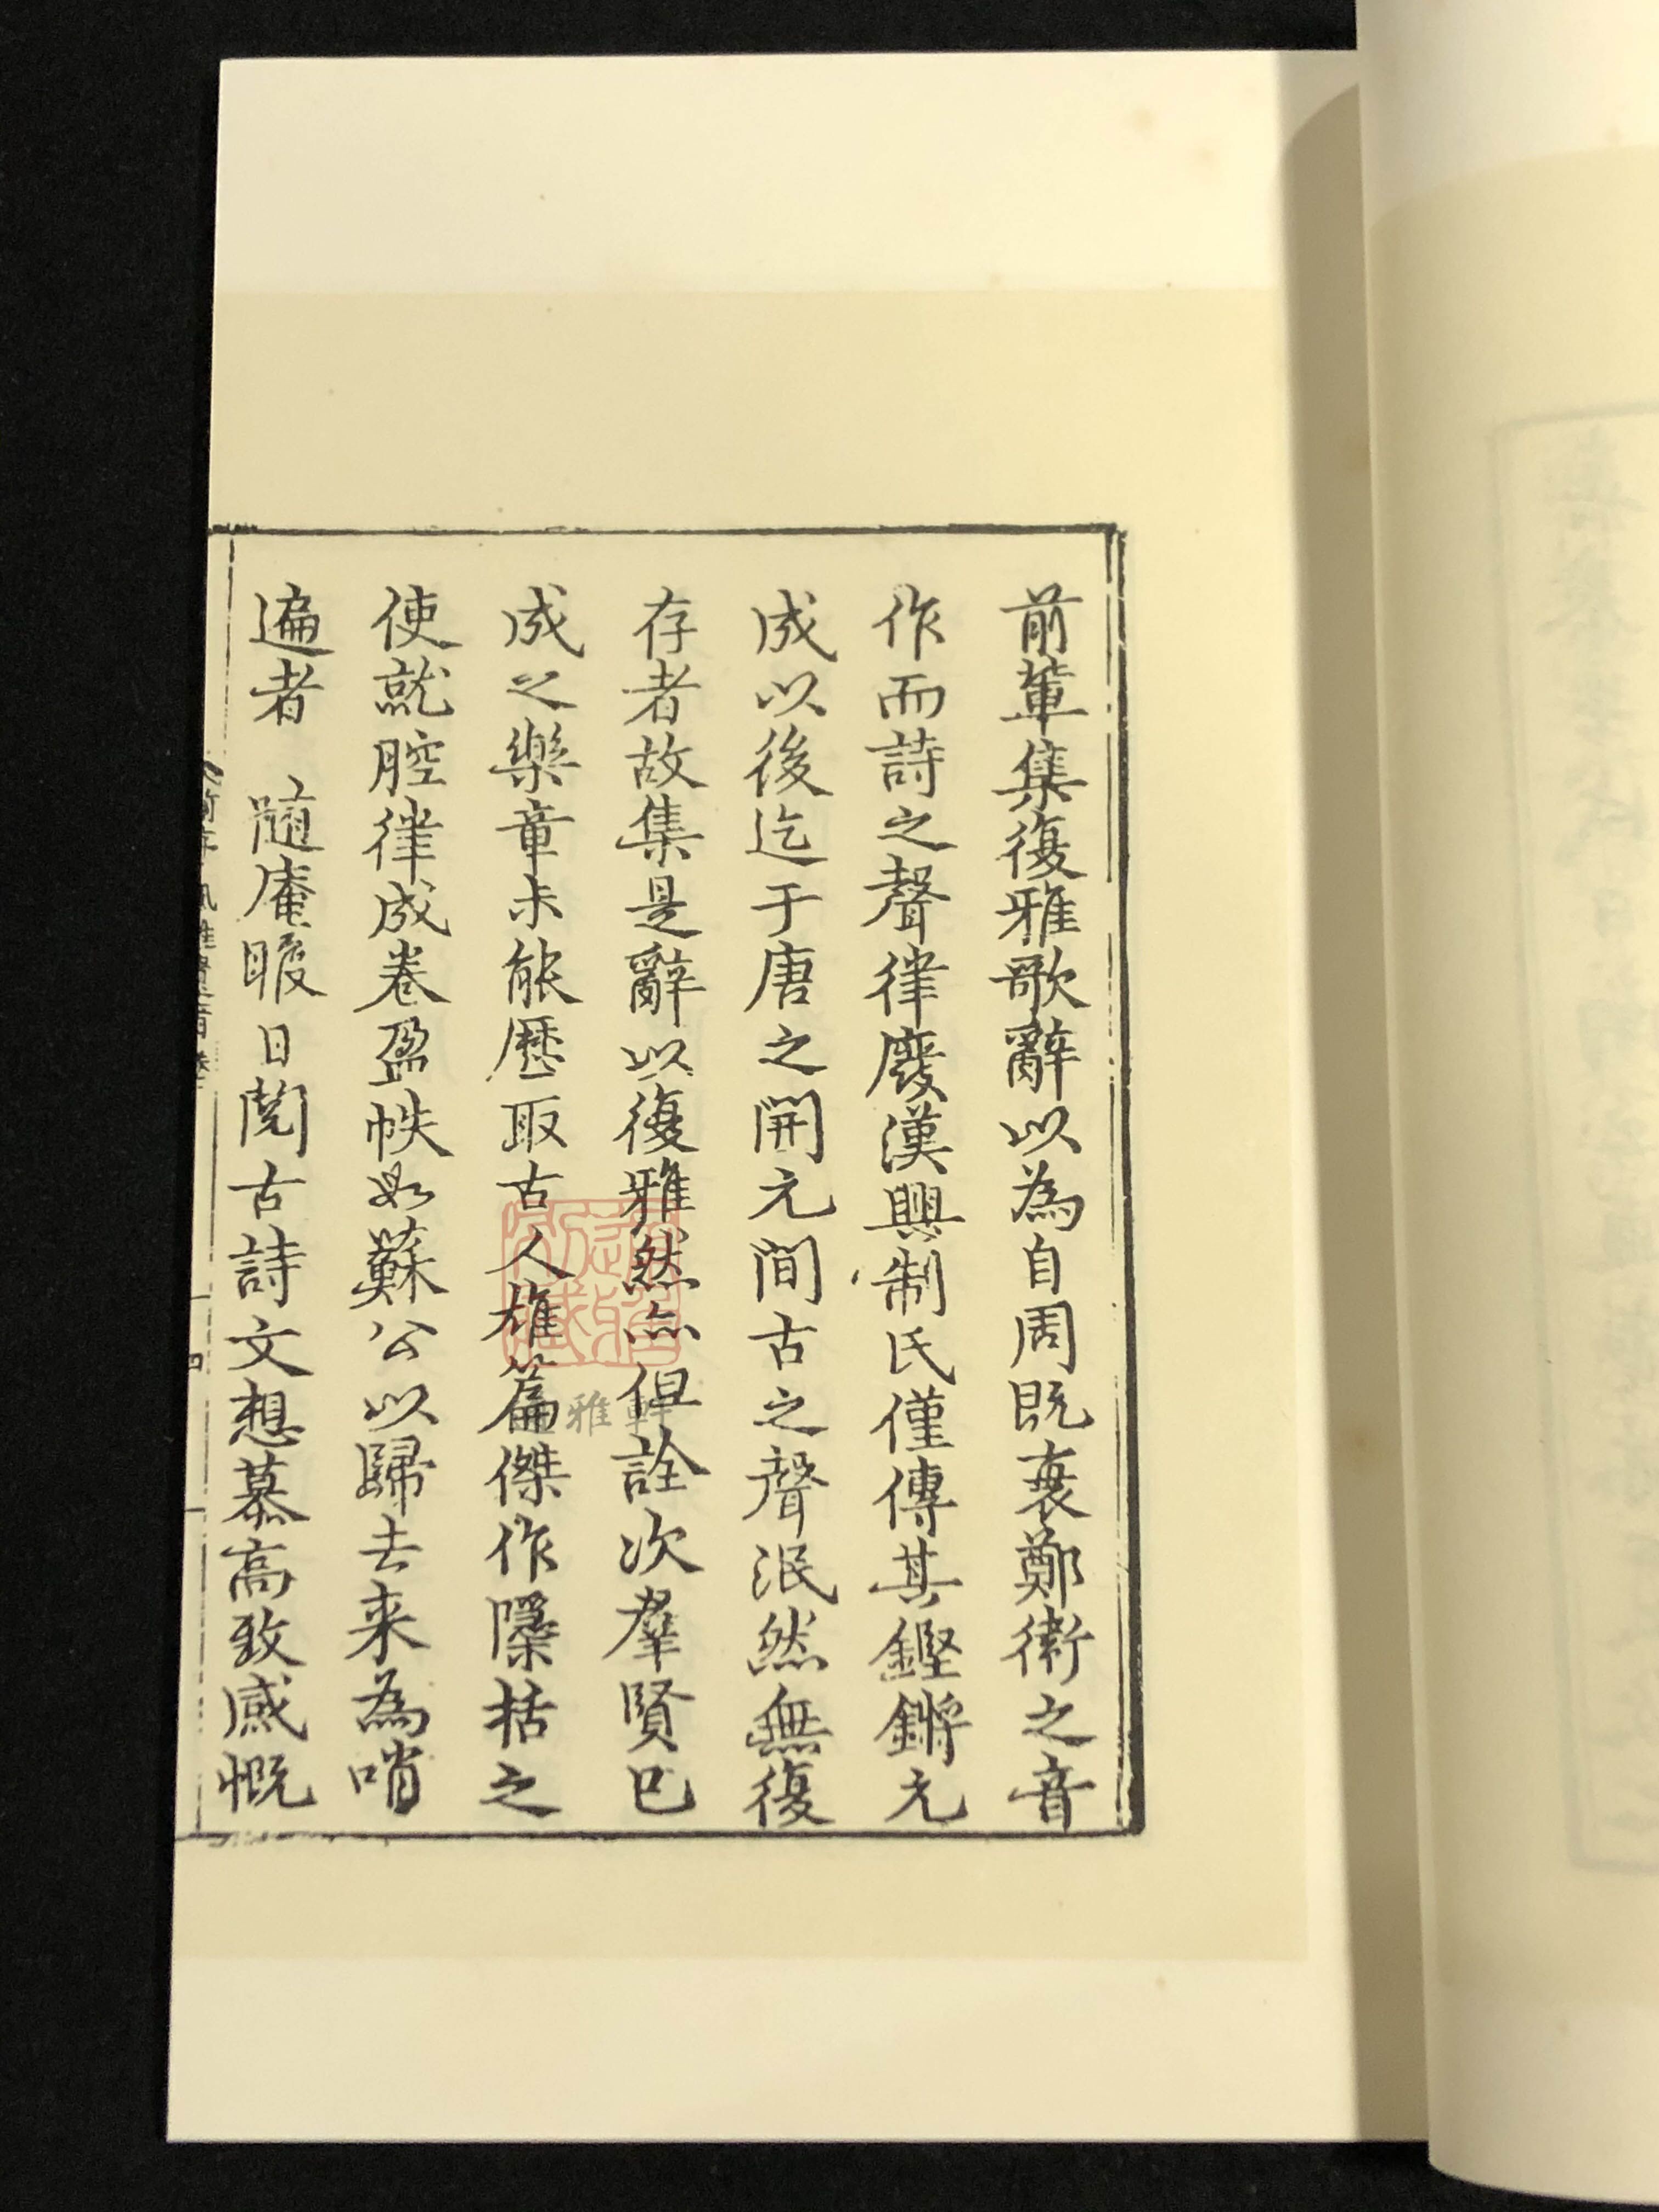 前軰集復雅歌辭以為自周既衰鄭衛之音
作而詩之聲律廢漢興制氏僅傳其鏗鏘元
成以後迄于唐之開元間古之聲泯然無復
存者故集是辭以復雅然亦但詮次羣賢已
成之樂章未能歷取古人雄篇傑作隱括之
使就腔律成卷盈帙如蘇公以歸去来為哨
遍者　随庵暇日閲古詩文想慕高致感慨
雅軒